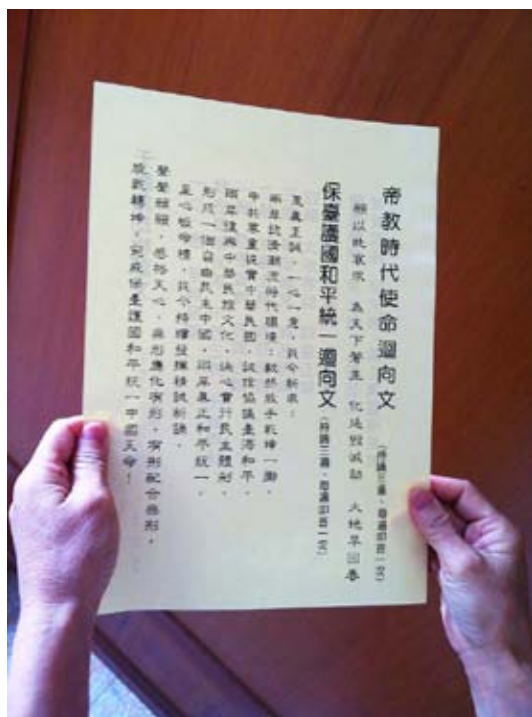 帝教時代使命迴向文(持誦三遍、每遍叩首一次)
願以此哀求 為天下蒼生 化延毀滅劫 大地早回春
保臺護國和平統一迴向文(持誦三遍、每遍叩首一次)
至真至誠,一心一意,我今祈求:
兩岸認清潮流時代環境;毅然放手乾坤一擲,
中共尊重現實中華民國,誠信協議臺海和平,
兩岸復興中華民族文化,決心實行民主體制,
形成一個自由民主中國,兩岸真正和平統一。
至心皈命禮,我今持續發揮精誠祈誦,
聲聲哀願,感格天心,無形應化有形,有形配合無形,
旋乾轉坤,完成保臺護國和平統一中國天命!